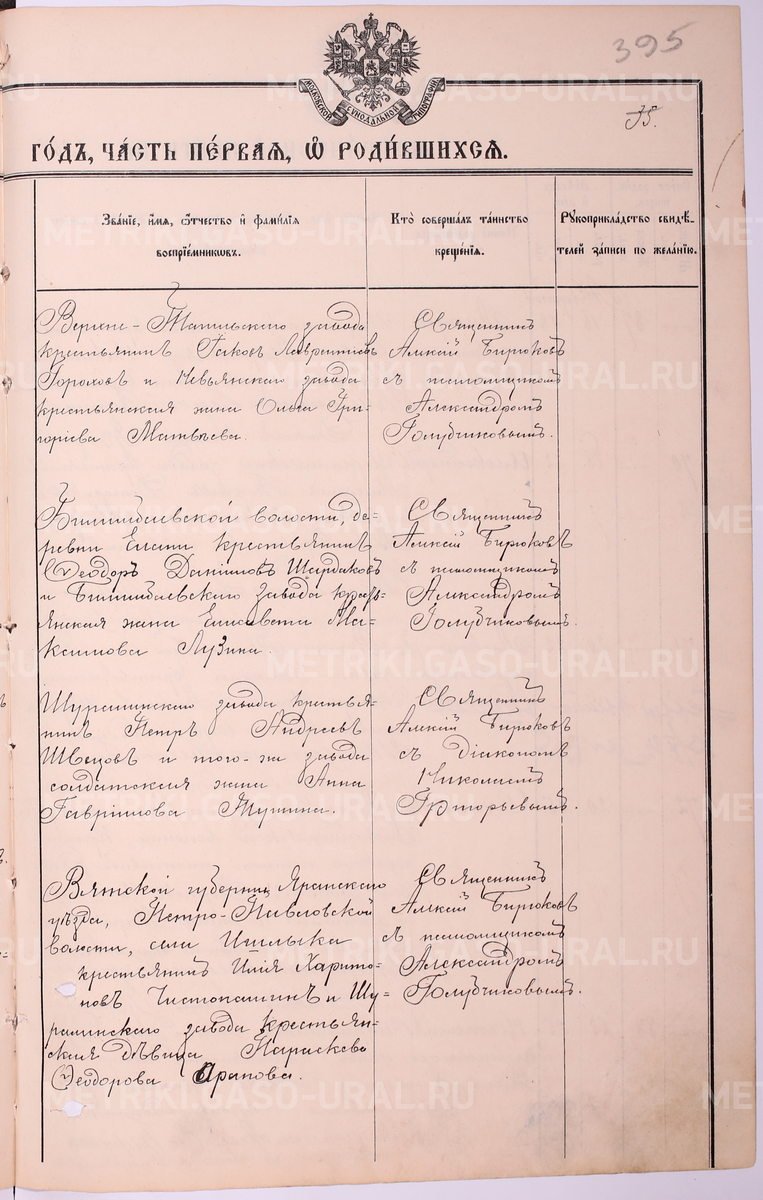 395
МОСКОВСКОЙ СѴНОДАЛЬНОЙ ТИПОГРАФІИ
35.
ГО́ДЪ, ЧА́СТЬ ПЕ́РВАЯ, Ѽ РОДИ́ВШИХСЯ.
Зва́нїе, и҆́мя, ѻ҆́тчество и҆ фами́лїя
воспрїе́мниковъ.
Кто̀ соверша́лъ та́инство
креще́нїя.
Рꙋкоприкла́дство свидѣ́-
телей за́писи по жела́нїю.
Верхне-Тагильскаго завода
крестьянинъ Іаковъ Лаврентіевъ
Гороховъ и Невьянскаго завода
крестьянская жена Ольга Гри-
горіева Матвѣева.
Священникъ
Алексій Бирюковъ
съ псаломщикомъ
Александромъ
Голубчиковымъ.
Билимбаевской волости, де-
ревни Елани крестьянинъ
Ѳеодоръ Даніиловъ Шардаковъ
и Билимбаевскаго завода кресть-
янская жена Елисавета Ма-
ксимова Лузина.
Священникъ
Алексій Бирюковъ
съ псаломщикомъ
Александромъ
Голубчиковымъ.
Шуралинскаго завода крестья-
нинъ Петръ Андреевъ
Швецовъ и того-же завода
солдатская жена Анна
Гавріилова Тупина.
Священникъ
Алексій Бирюковъ
съ Діакономъ
Николаемъ
Григорьевымъ.
Вятской губерніи Яранскаго
уѣзда, Петро-Павловской
волости, села
крестьянинъ Илія Харито-
новъ Чистопашинъ и Шу-
ралинскаго завода крестьян-
ская дѣвица Параскева
Ѳеодорова Арапова.
Священникъ
Алексій Бирюковъ
съ псаломщикомъ
Александромъ
Голубчиковымъ.
METRIKI.GASO-URAL.RU